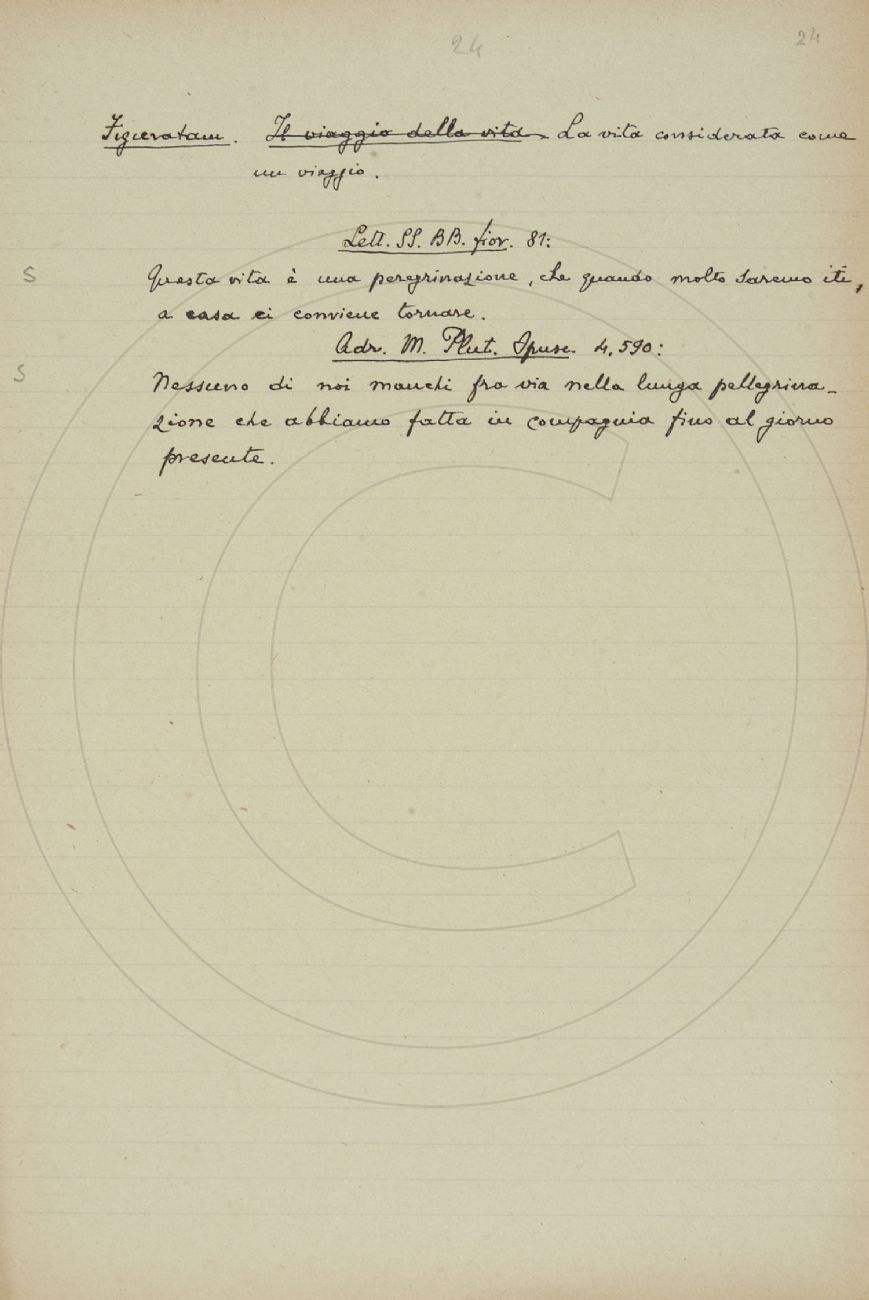 24 24
Figuratam. Il viaggio della vita. La vita considerata come
un viaggio.
Lett. SS. BB. fior. 81:
S Questa vita è una peregrinazione, che quando molto saremo iti,
a casa ci conviene tornare.
Adr. M. Plut. Opusc. 4, 590:
S Nessuno di noi manchi fra via nella lunga pellegrina-
zione che abbiamo fatta in compagnia fino al giorno
presente.